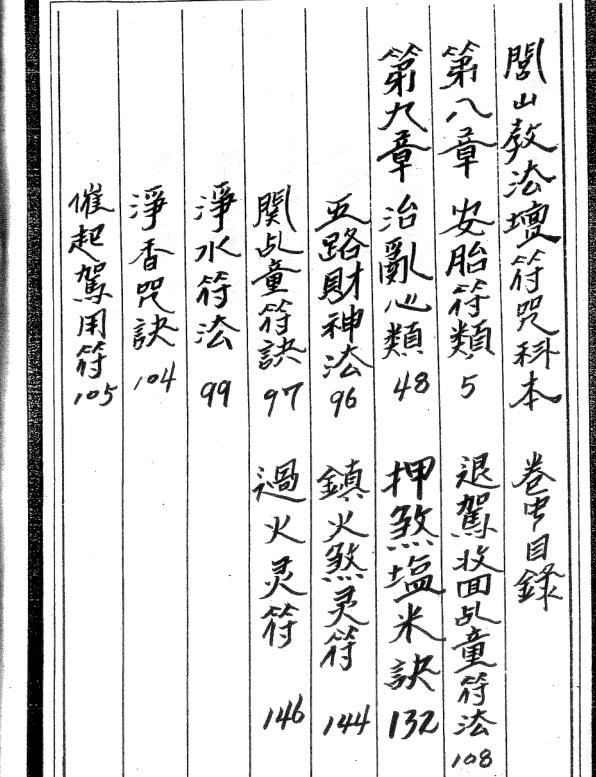 閭山教法壇符咒科本 卷中目錄
第八章 安胎符類 5
第九章 治亂心類 48
五路財神法 96
関乩童符訣 97
淨水符法 99
淨香咒訣 104
催起駕用符 105
退駕收回乩童符法 108
押煞塩米訣 132
鎮火煞灵符 144
過火灵符 146